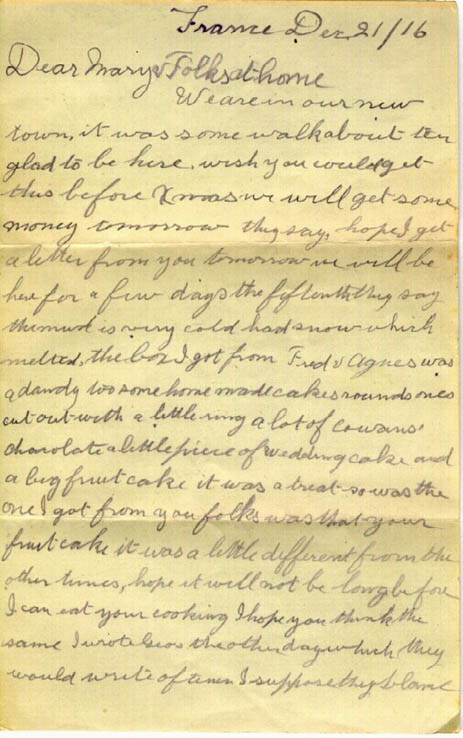 France Dec 21/16
Dear Mary & Folks at home
We are in our new
town, it was some walk about ten
glad to be here. wish you could get
this before Xmas we will get some
money tomorrow they say, hope I get
a letter from you tomorrow we will be
here for a few days the fifteenth they say
the mud is very cold had snow which
melted, the box I got from Fred & Agnes was
a dandy too some home made cakes rounds ones
cut out with a little ring a lot of cowans
chocolate a little piece of wedding cake and
a big fruit cake it was a treat so was the
one I got from you folks was that your
fruit cake it was a little different from the
other times, hope it will not be long before
I can eat your cooking I hope you think the
same I wrote the other day which they
would write oftener I suppose they blame